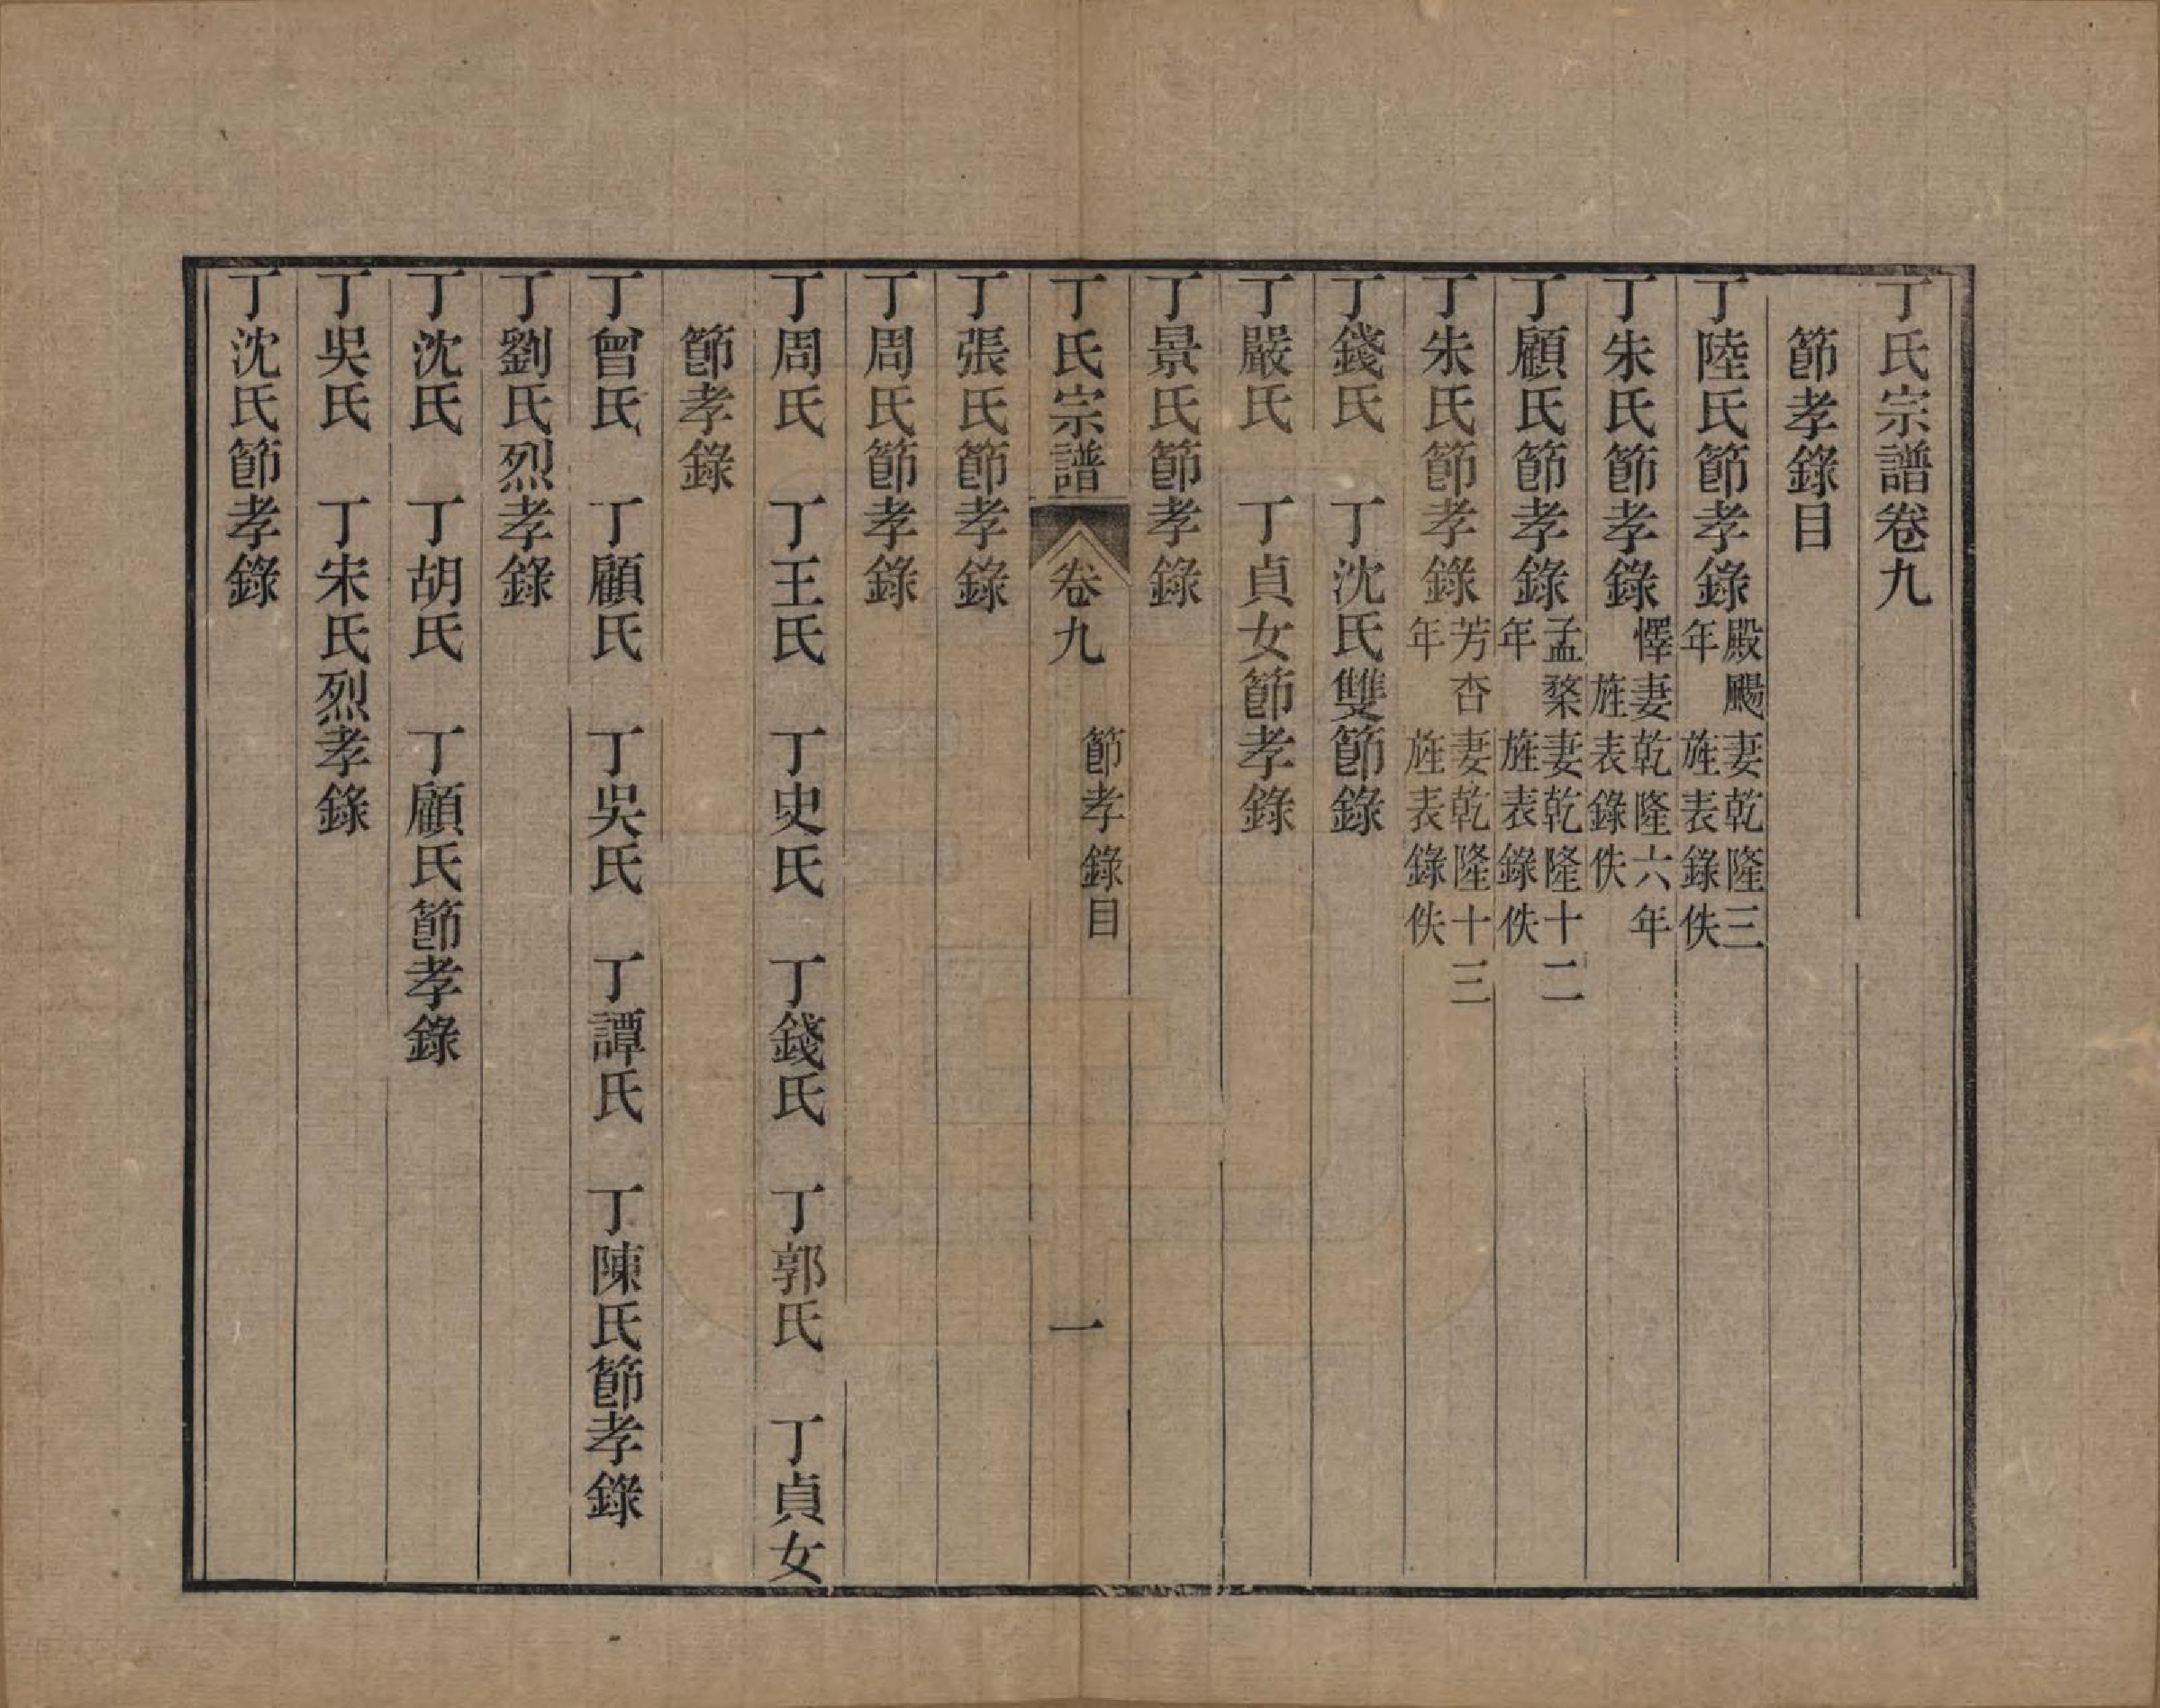 丁氏宗譜卷九
節孝錄目
丁陸氏節孝錄殿颺妻乾隆三年旌表錄佚
丁朱氏節孝錄懌妻乾隆六年旌表錄佚
丁顧氏節孝錄孟棻妻乾隆十二年旌表錄佚
丁朱氏節孝錄芳杏妻乾隆十三年旌表錄佚
丁錢氏　丁沈氏雙節錄
丁嚴氏　丁貞女節孝錄
丁景氏節孝錄
丁氏宗譜　卷九　節孝錄目　一
丁張氏節孝錄
丁周氏節孝錄
丁周氏　丁王氏　丁史氏　丁錢氏　丁郭氏　丁貞女
節孝錄
丁曾氏　丁顧氏　丁吳氏　丁譚氏　丁陳氏節孝錄
丁劉氏烈孝錄
丁沈氏　丁胡氏　丁顧氏節孝錄
丁吳氏　丁宋氏烈孝錄
丁沈氏節孝錄